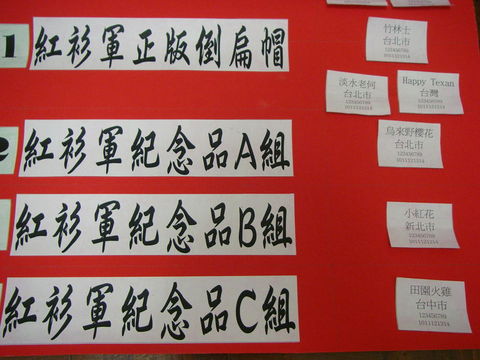 1 紅衫軍正版倒扁帽
竹林士
台北市
123456789
1011121314
淡水老何
台北市
123456789
1011121314
Happy Texan
台灣
123456789
1011121314
紅衫軍紀念品A組
烏來野櫻花
台北市
123456789
1011121314
紅衫軍紀念品B組
小紅花
新北市
123456789
1011121314
紅衫軍紀念品C組
田園火雞
台中市
123456789
1011121314